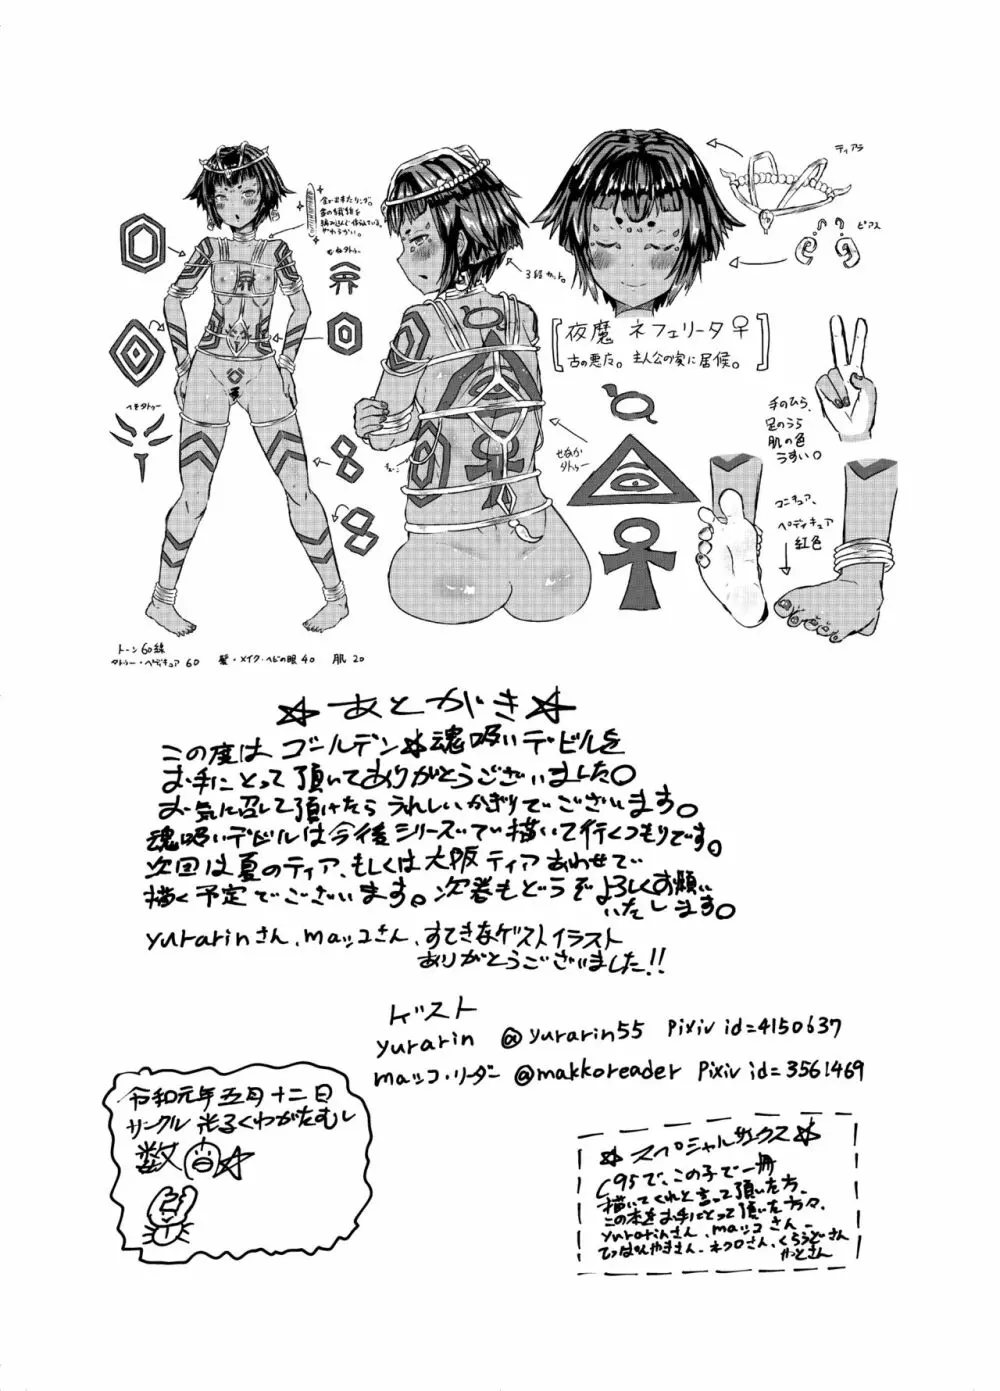 ティアラ
ピアス
3段カット。
むねタトゥー
へそタトゥー
せなか
タトゥー
[夜魔 ネフェリータ♀
古の悪魔。主人公の家に居候。]
手のひら、
足のうら
肌の色
うすい。
ペディキュア
紅色
トーン60線
タトゥー・ペディキュア 60 髪・メイク・ヘビの眼 40 肌 20
☆あとがき☆
この度はゴールデン☆魂吸いデビルを
お手にとって頂いてありがとうございました。
お気に召して頂けたらうれしいかぎりでございます。
魂吸いデビルは今後シリーズで描いて行くつもりです。
次回は夏のティア、もしくは大阪ティアあわせで
描く予定でございます。次巻もどうぞよろしくお願い
いたします。
yurarinさん、maッコさん、すてきなゲストイラスト
ありがとうございました!!
ゲスト
yurarin @yurarin55 Pixiv id=4150637
maッコ・リーダー @makkoreader Pixiv id=3561469
令和元年五月十二日
サークル 光るくわがたむし
数
☆スペシャルサンクス☆
C95で、この子で一冊
描いてくれと言って頂いた方、
この本をお手にとって頂いた方々、
yurarinさん、maッコさん、
てっぱんやきさん、ネクロさん、くらうどさん